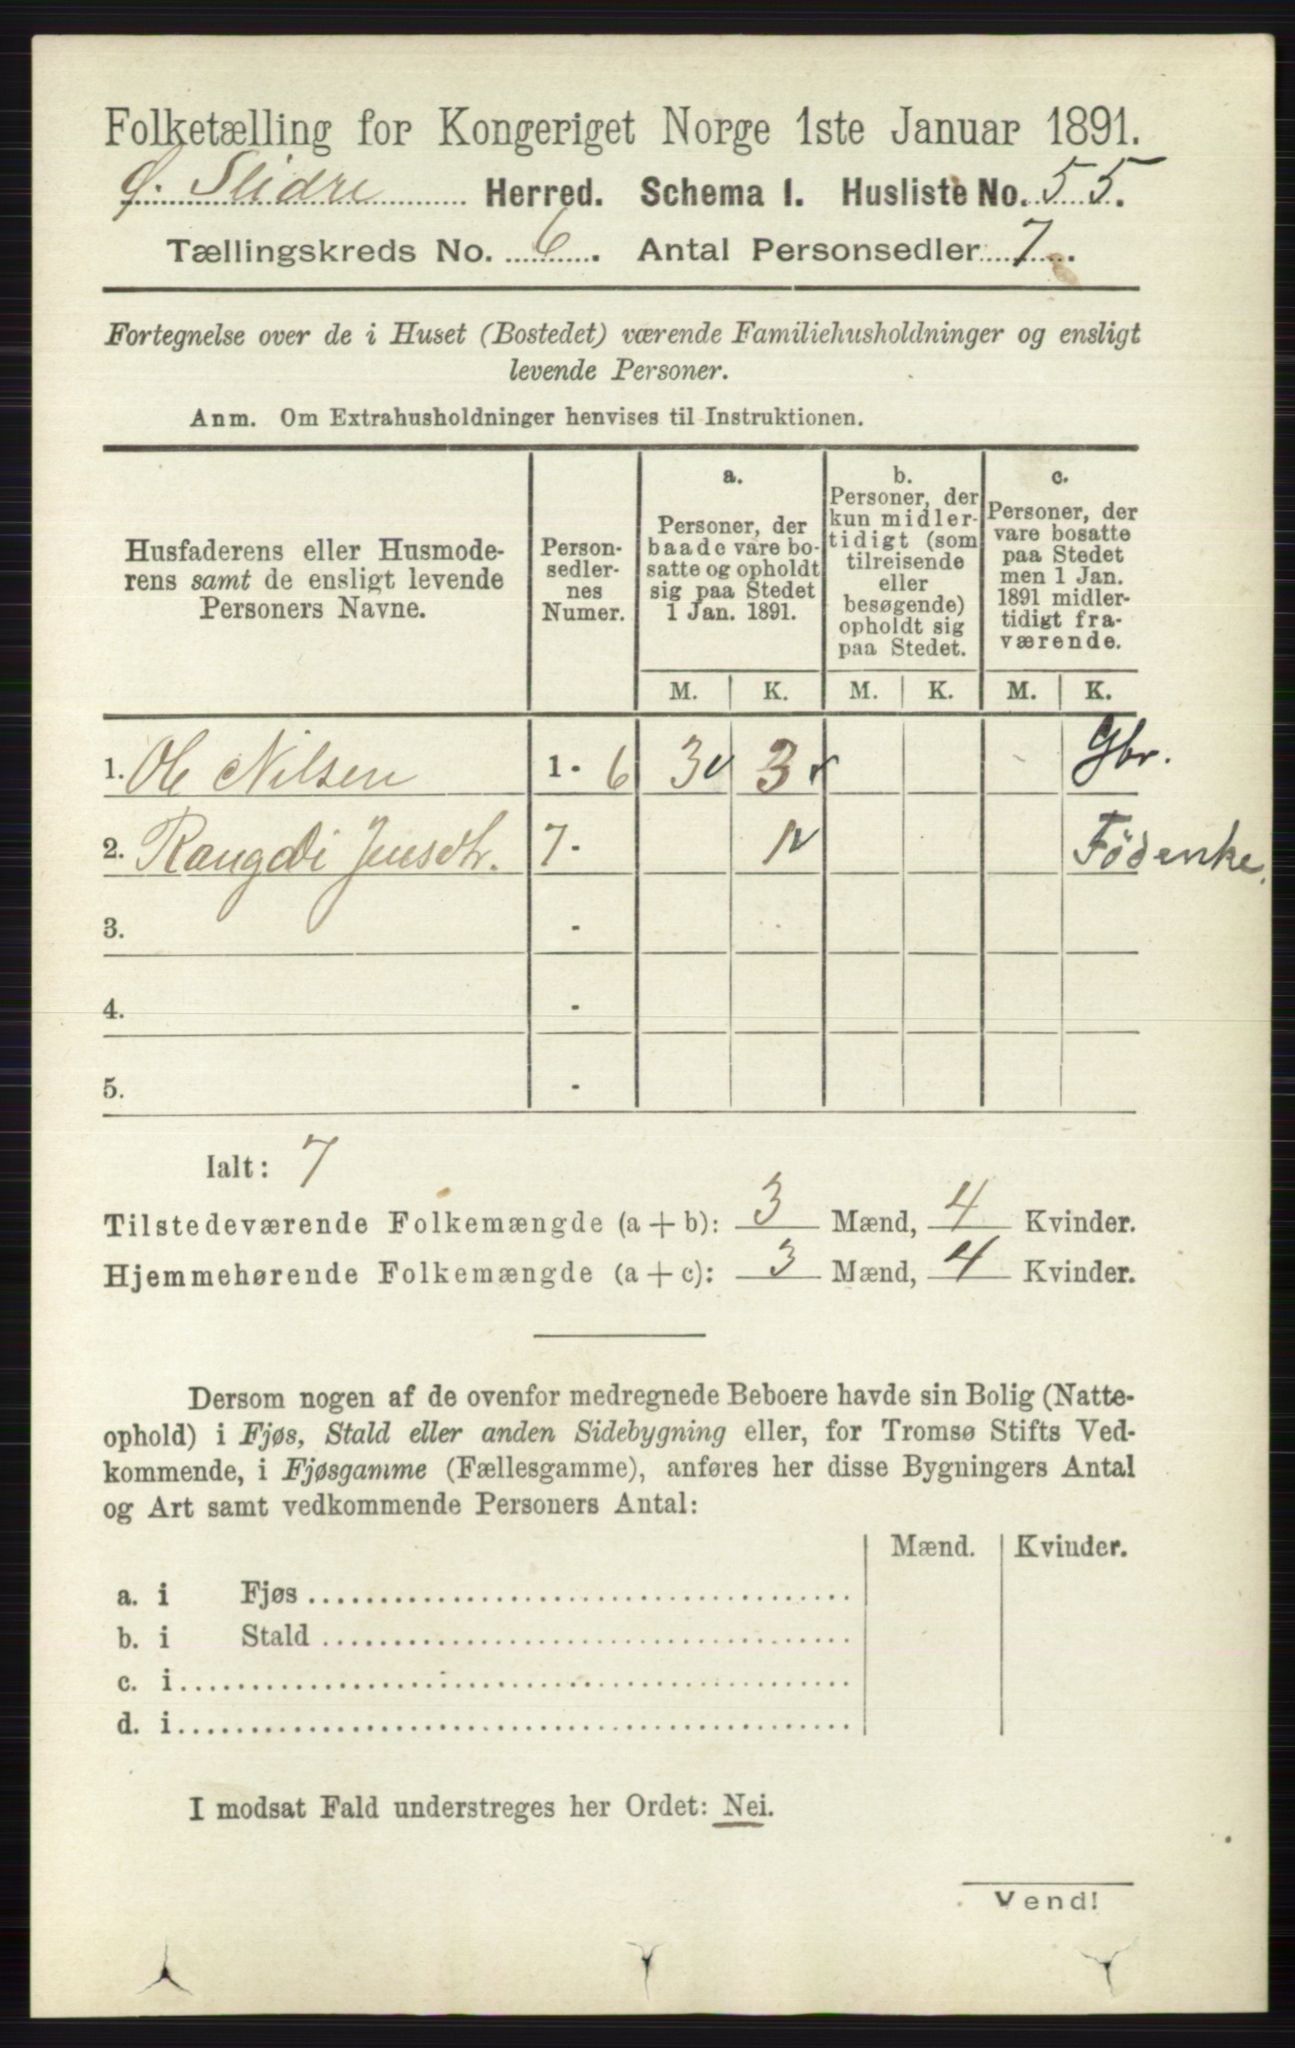 Folketælling for Kongeriget Norge 1ste Januar 1891.
Ø. Slidre Herred. Schema I. Husliste No. 55.
Tællingskreds No. 6. Antal Personsedler 7.
Fortegnelse over de i Huset (Bostedet) værende Familiehusholdninger og ensligt
levende Personer.
Anm. Om Extrahusholdninger henvises til Instruktionen.
Husfaderens eller Husmode-
rens samt de ensligt levende
Personers Navne.
Person-
sedler-
nes
Numer.
a.
Personer, der
baade vare bo-
satte og opholdt
sig paa Stedet
1 Jan. 1891.
b.
Personer, der
kun midler-
tidigt (som
tilreisende
eller
besøgende)
opholdt sig
paa Stedet.
c.
Personer, der
vare bosatte
paa Stedet
men 1 Jan.
1891 midler-
tidigt fra-
værende.
M. K. M. K. M. K.
1. Ole Nilsen 1 - 6 3 3 Gbr.
2. Rangdi Jensdtr. 7 - 1 Födenke.
3. -
4. -
5. -
Ialt: 7
Tilstedeværende Folkemængde (a + b): 3 Mænd, 4 Kvinder.
Hjemmehørende Folkemængde (a + c): 3 Mænd, 4 Kvinder.
Dersom nogen af de ovenfor medregnede Beboere havde sin Bolig (Natte-
ophold) i Fjøs, Stald eller anden Sidebygning eller, for Tromsø Stifts Ved-
kommende, i Fjøsgamme (Fællesgamme), anføres her disse Bygningers Antal
og Art samt vedkommende Personers Antal:
Mænd. Kvinder.
a. i Fjøs
b. i Stald
c. i
d. i
I modsat Fald understreges her Ordet: Nei.
Vend!